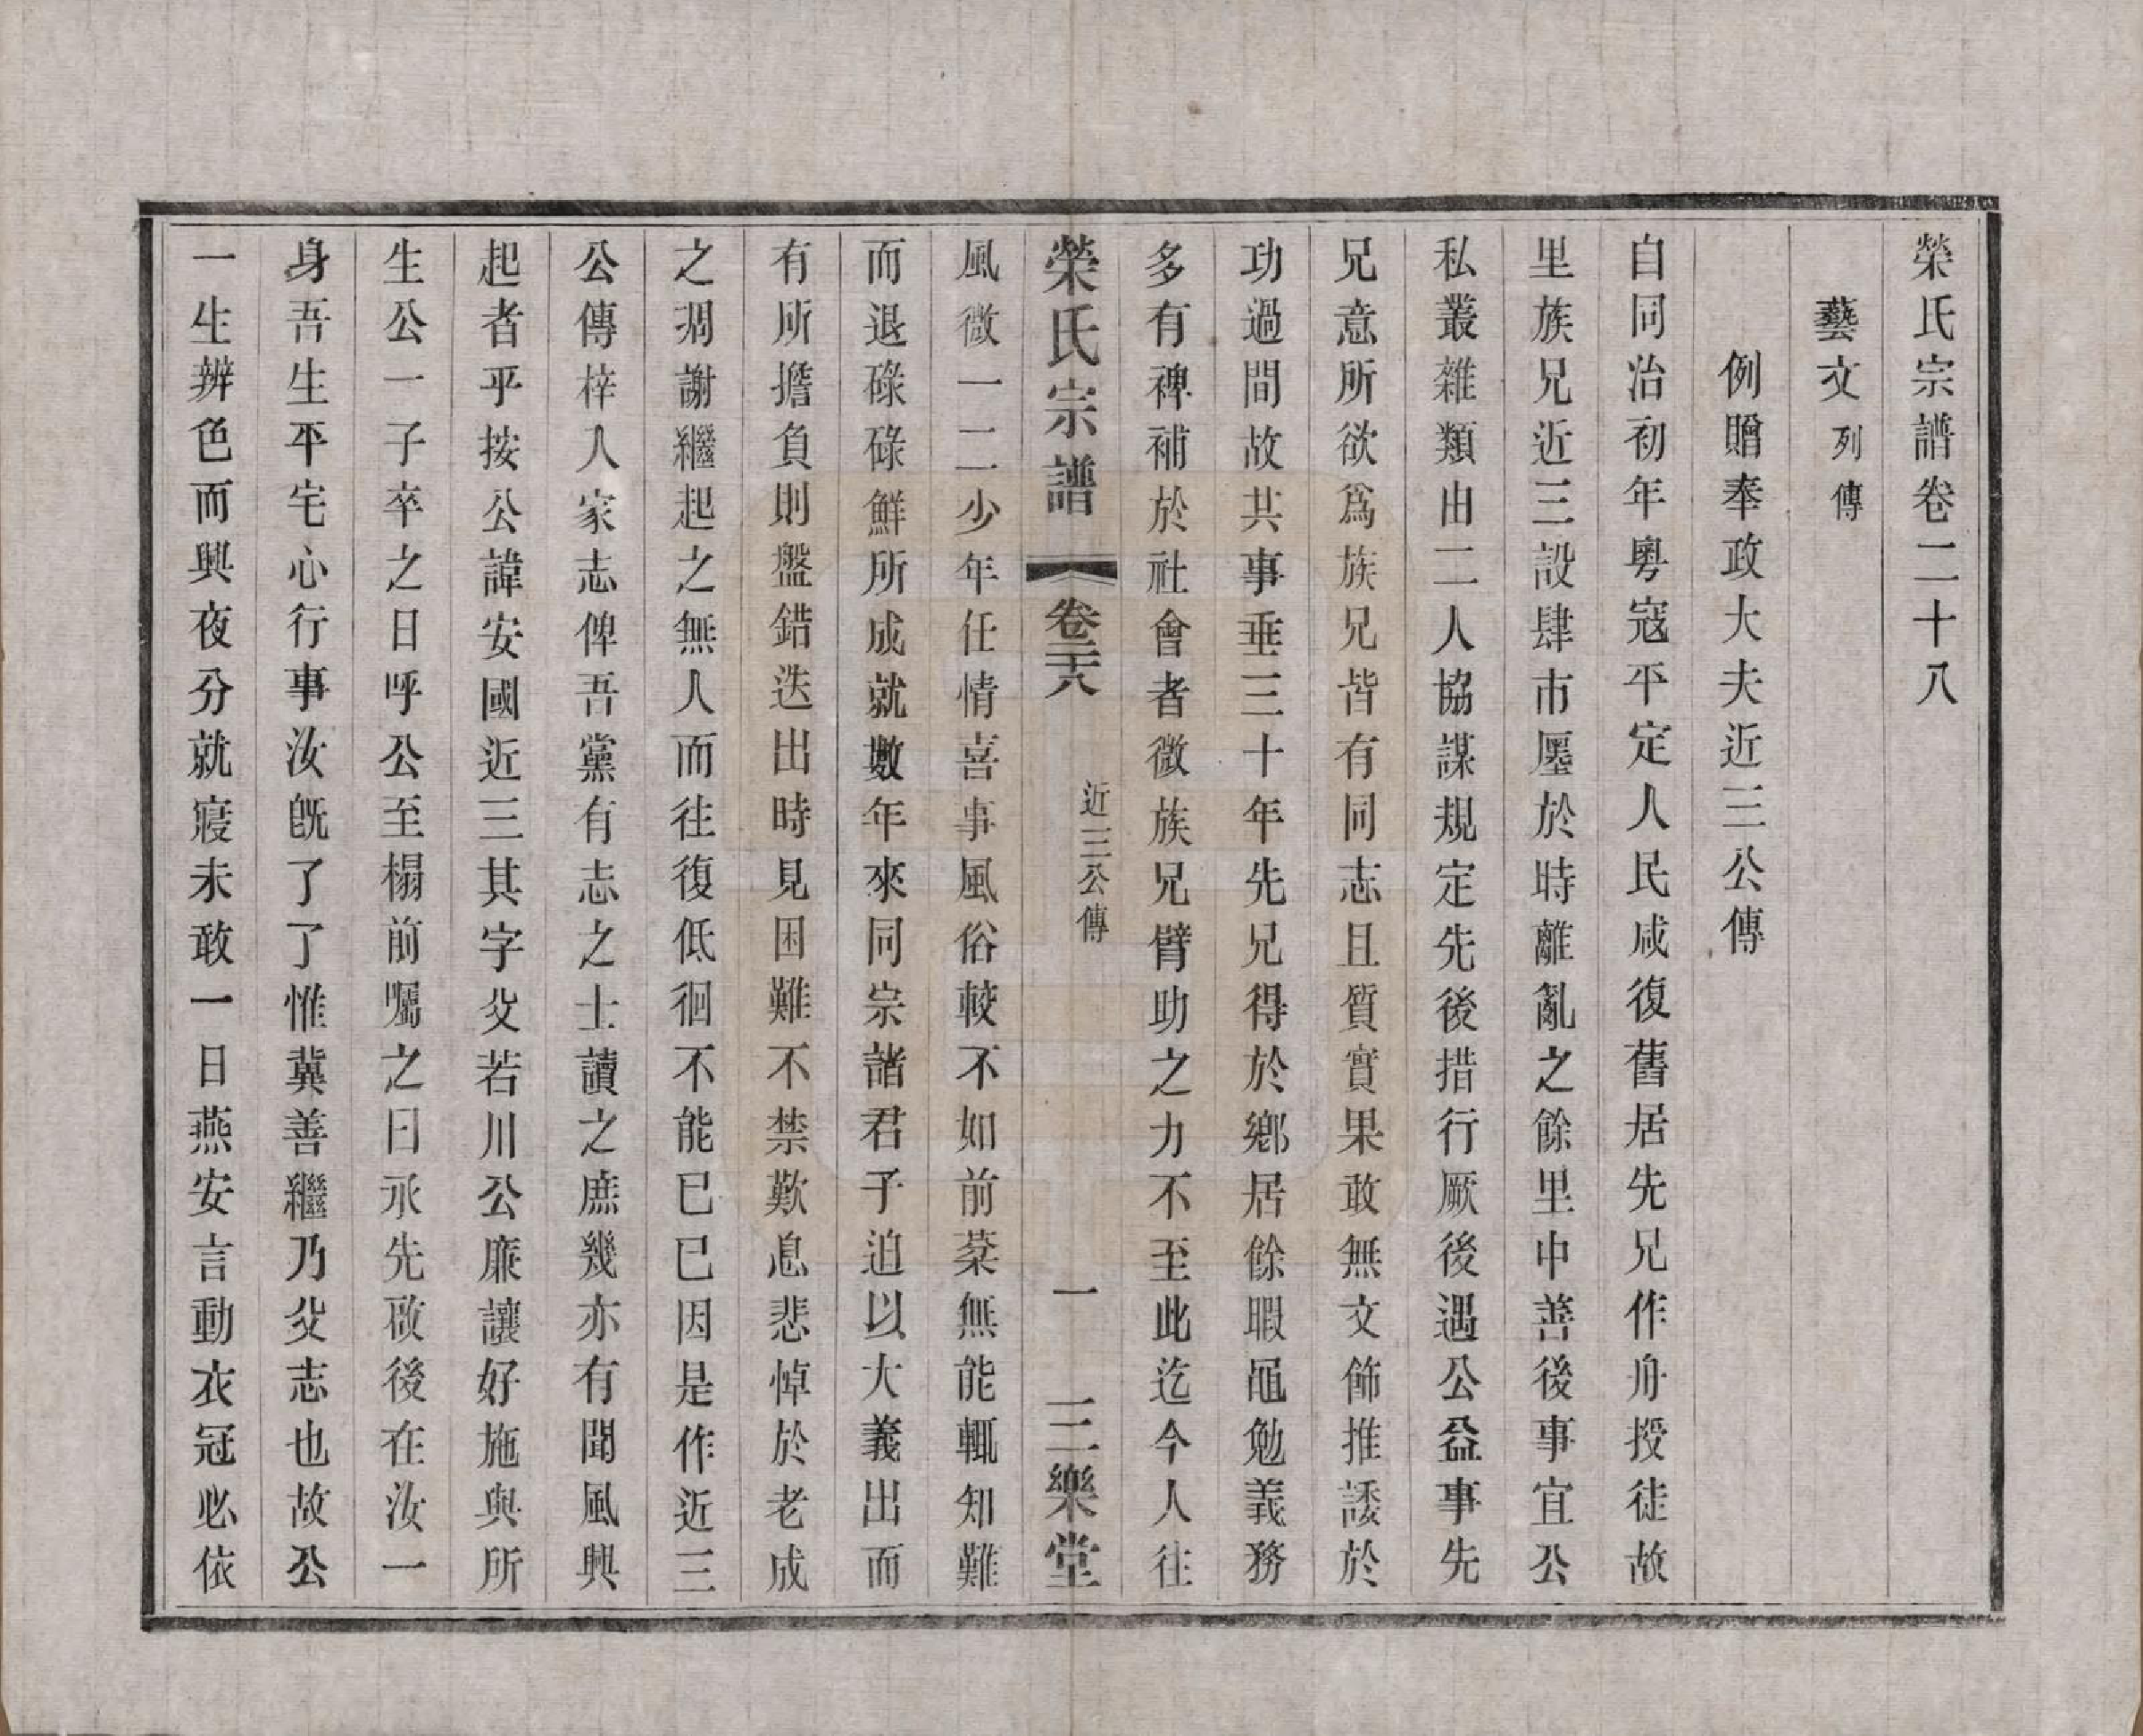 榮氏宗譜卷二十八
藝文列傳
例贈奉政大夫近三公傳
自同治初年粵寇平定人民咸復舊居先兄作舟授徒故
里族兄近三設肆市廛於時離亂之餘里中善後事宜公
私叢雜類由二人協謀規定先後措行厥後遇公益事先
兄意所欲爲族兄皆有同志且質實果敢無文飾推諉於
功過間故共事垂三十年先兄得於鄉居餘暇黽勉義務
多有裨補於社會者微族兄臂助之力不至此迄今人往
榮氏宗譜 卷二十八 近三公傳 一 三樂堂
風微一二少年任情喜事風俗較不如前棻無能輒知難
而退碌碌鮮所成就數年來同宗諸君子迫以大義出而
有所擔負則盤錯迭出時見困難不禁歎息悲悼於老成
之凋謝繼起之無人而往復低徊不能已已因是作近三
公傳梓人家志俾吾黨有志之士讀之庶幾亦有聞風興
起者乎按公諱安國近三其字父若川公廉讓好施與所
生公一子卒之日呼公至榻前囑之曰承先啟後在汝一
身吾生平宅心行事汝旣了了惟冀善繼乃父志也故公
一生辨色而興夜分就寢未敢一日燕安言動衣冠必依